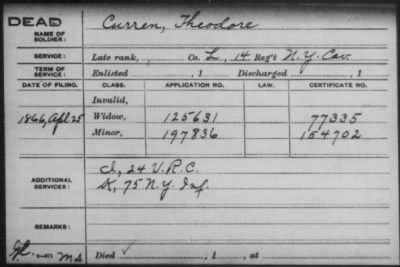 DEAD
NAME OF SOLDIER: Curren, Theodore
SERVICE: Late rank, Co. L, 14 Reg't N.Y. Cav.
TERM OF SERVICE: Enlisted , 1 Discharged , 1
DATE OF FILING. CLASS. APPLICATION NO. LAW. CERTIFICATE NO.
Invalid,
1866, Apl 25 Widow, 125631 77335
Minor, 197836 154702
ADDITIONAL SERVICES: I, 24 V.R.C.
K, 75 N.Y. Inf.
REMARKS:
Died , 1 , at